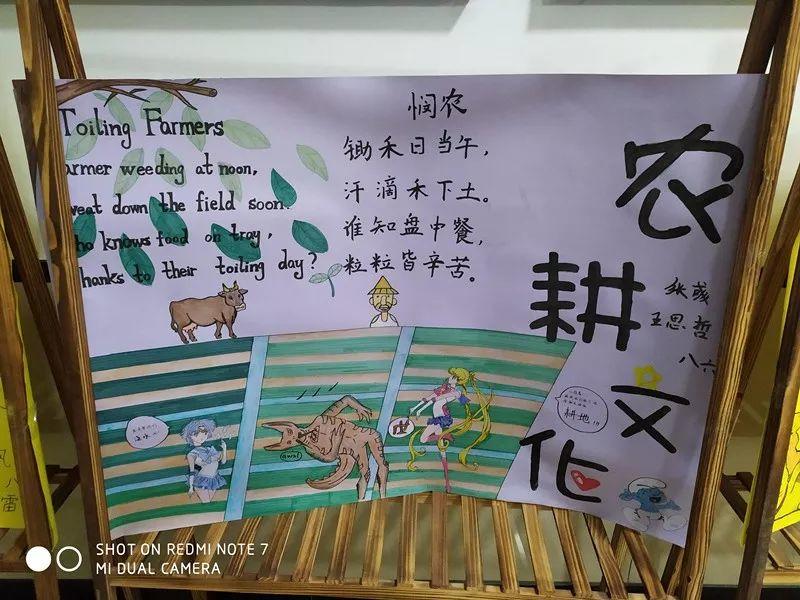 Toiling Farmers
armer weeding at noon,
weat down the field soon.
ho knows food on tray,
hanks to their toiling day?
悯农
锄禾日当午，
汗滴禾下土。
谁知盘中餐，
粒粒皆辛苦。
农
耕
文
化
王思哲
八六
耕地!!!
awa!
SHOT ON REDMI NOTE 7
MI DUAL CAMERA
八
雷